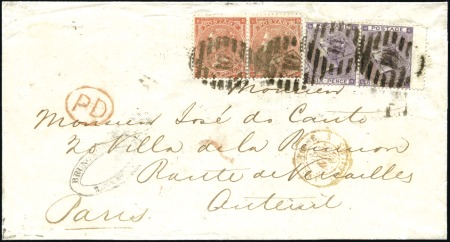 POSTAGE POSTAGE POSTAGE
PENCE
Monsieur
PD
Monsieur José do Canto
20 Villa de la Réunion
Route de Versailles
Auteuil
Paris